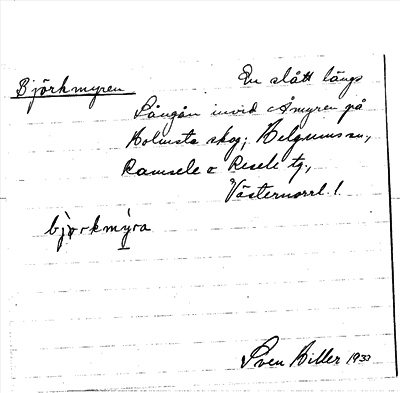 Björkmyren
En slått längs
Sångån invid Åmyren på
Holmsta skog; Helgums sn,
Ramsele o Resele tg.,
Västernorrl. l.
bjørkmýra
Sven Hiller 1933